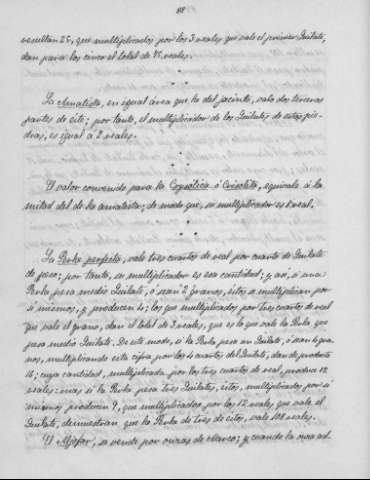 88
resultan 25, que multiplicados por los 3 reales que vale el primer Quilate,
dan para los cinco el total de 75 reales.
La Amatista, en igual área que la del jacinto, vale dos terceras
partes de éste; por tanto, el multiplicador de los Quilates de estas pie-
dras, es igual a 2 reales.
El valor convenido para la Crysolica ó Crisolito, equivale á la
mitad del de la amatista; de modo que, su multiplicador es 1 real.
La Perla perfecta, vale tres cuartos de real por cuarto de Quilate
de peso; por tanto, su multiplicador es esa cantidad; y así, si una
Perla pesa medio Quilate, ó sean 2 granos, éstos se multiplican por
sí mismos, y producen 4; los que multiplicados por tres cuartos de real
que vale el grano, dan el total de 3 reales, que es lo que vale la Perla que
pesa medio Quilate. De este modo, si la Perla pesa un Quilate, ó sean 4 gra-
nos, multiplicando esta cifra por los 4 cuartos del Quilate, dan de producto
16; cuya cantidad, multiplicada por los tres cuartos de real, produce 12
reales: mas si la Perla pesa tres Quilates, éstos, multiplicados por sí
mismos producen 9, que multiplicados por los 12 reales que vale el
Quilate, demuestran que la Perla de tres de éstos, vale 108 reales.
El Aljofar, se vende por onzas de Marco; y cuando la onza ad-